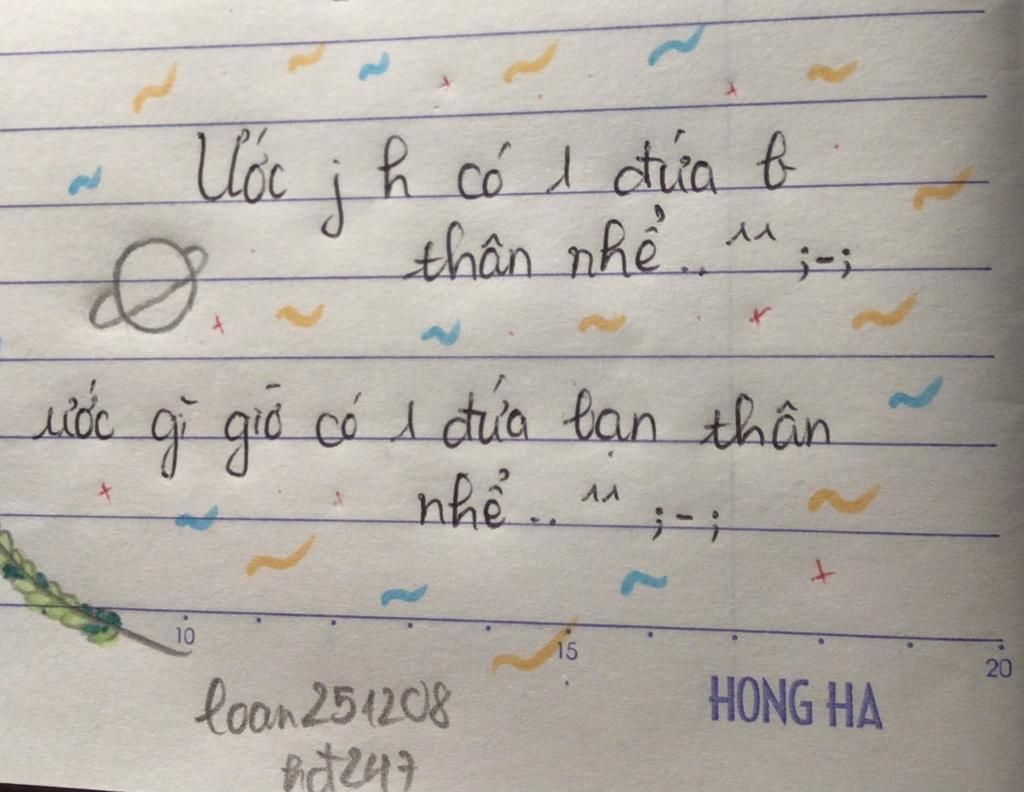 Ước j h có 1 đứa b
thân nhể.. ^^ ;-;
ước gì giờ có 1 đứa bạn thân
nhể.. ^^ ;-;
10 15 20
loan251208 HONG HA
hdt247